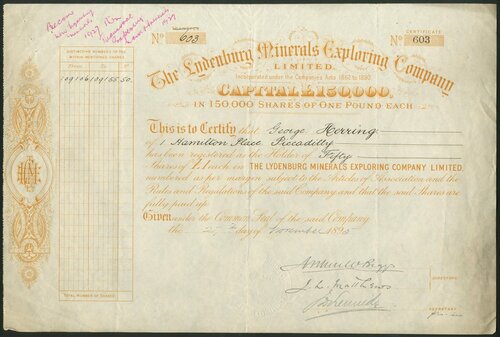 Become
New
1927
1929
Nº 603
CERTIFICATE
Nº 603
The Lydenburg Minerals Exploring Company
LIMITED.
Incorporated under the Companies Acts 1862 to 1890.
CAPITAL £150,000,
IN 150,000 SHARES OF ONE POUND EACH.
DISTINCTIVE NUMBERS OF THE
WITHIN-MENTIONED SHARES
109106 109155. 50.
This is to Certify that George Herring
of 1 Hamilton Place Piccadilly
has been registered as the Holder of Fifty
Shares of £1 each in THE LYDENBURG MINERALS EXPLORING COMPANY LIMITED,
numbered as per margin subject to the Articles of Association and the
Rules and Regulations of the said Company, and that the said Shares are
fully paid up.
Given under the Common Seal of the said Company
the day of November 1895
J. L. Matthews
DIRECTORS
SECRETARY
TOTAL NUMBER OF SHARES